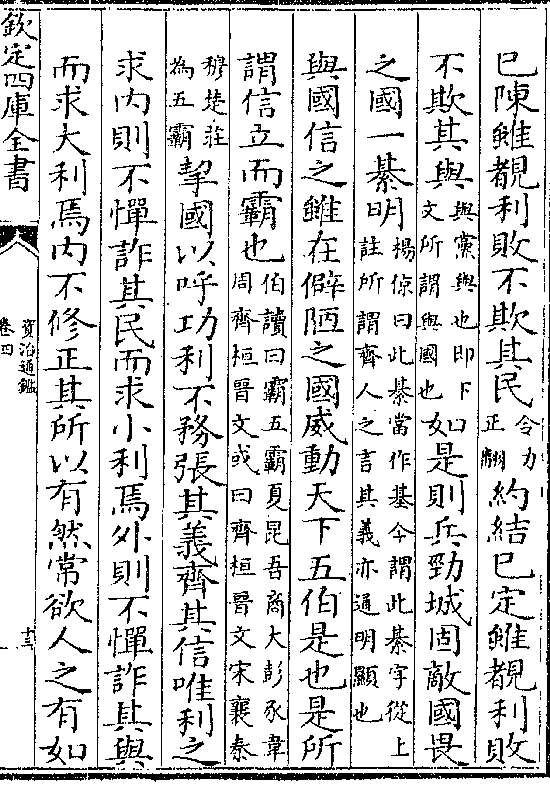 已陳雖覩利敗不欺其民令力正翻約結已定雖覩利敗
不欺其與與黨與也即下文所謂與國也如是則兵勁城固敵國畏
之國一綦明楊倞曰此綦當作基今謂此綦字從上註所謂齊人之言其義亦通明顯也
與國信之雖在僻陋之國威動天下五伯是也是所
謂信立而霸也伯讀曰霸五霸夏昆吾商大彭豕韋周齊桓晉文或曰齊桓晉文宋襄秦
穆楚莊為五霸挈國以呼功利不務張其義齊其信唯利之
求内則不憚詐其民而求小利焉外則不憚詐其與
而求大利焉内不修正其所以有然常欲人之有如
欽定四庫全書
資治通鑑
卷四
十三